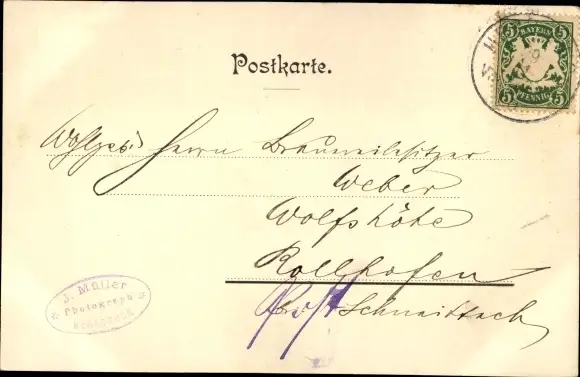 5 BAYERN 5
5 PFENNIG 5
Postkarte.
Wohlgeb. Herrn Brauereibesitzer
Weber
Wolfshöhe
Rollhofen
Schnaittach
J. Müller
Photograph